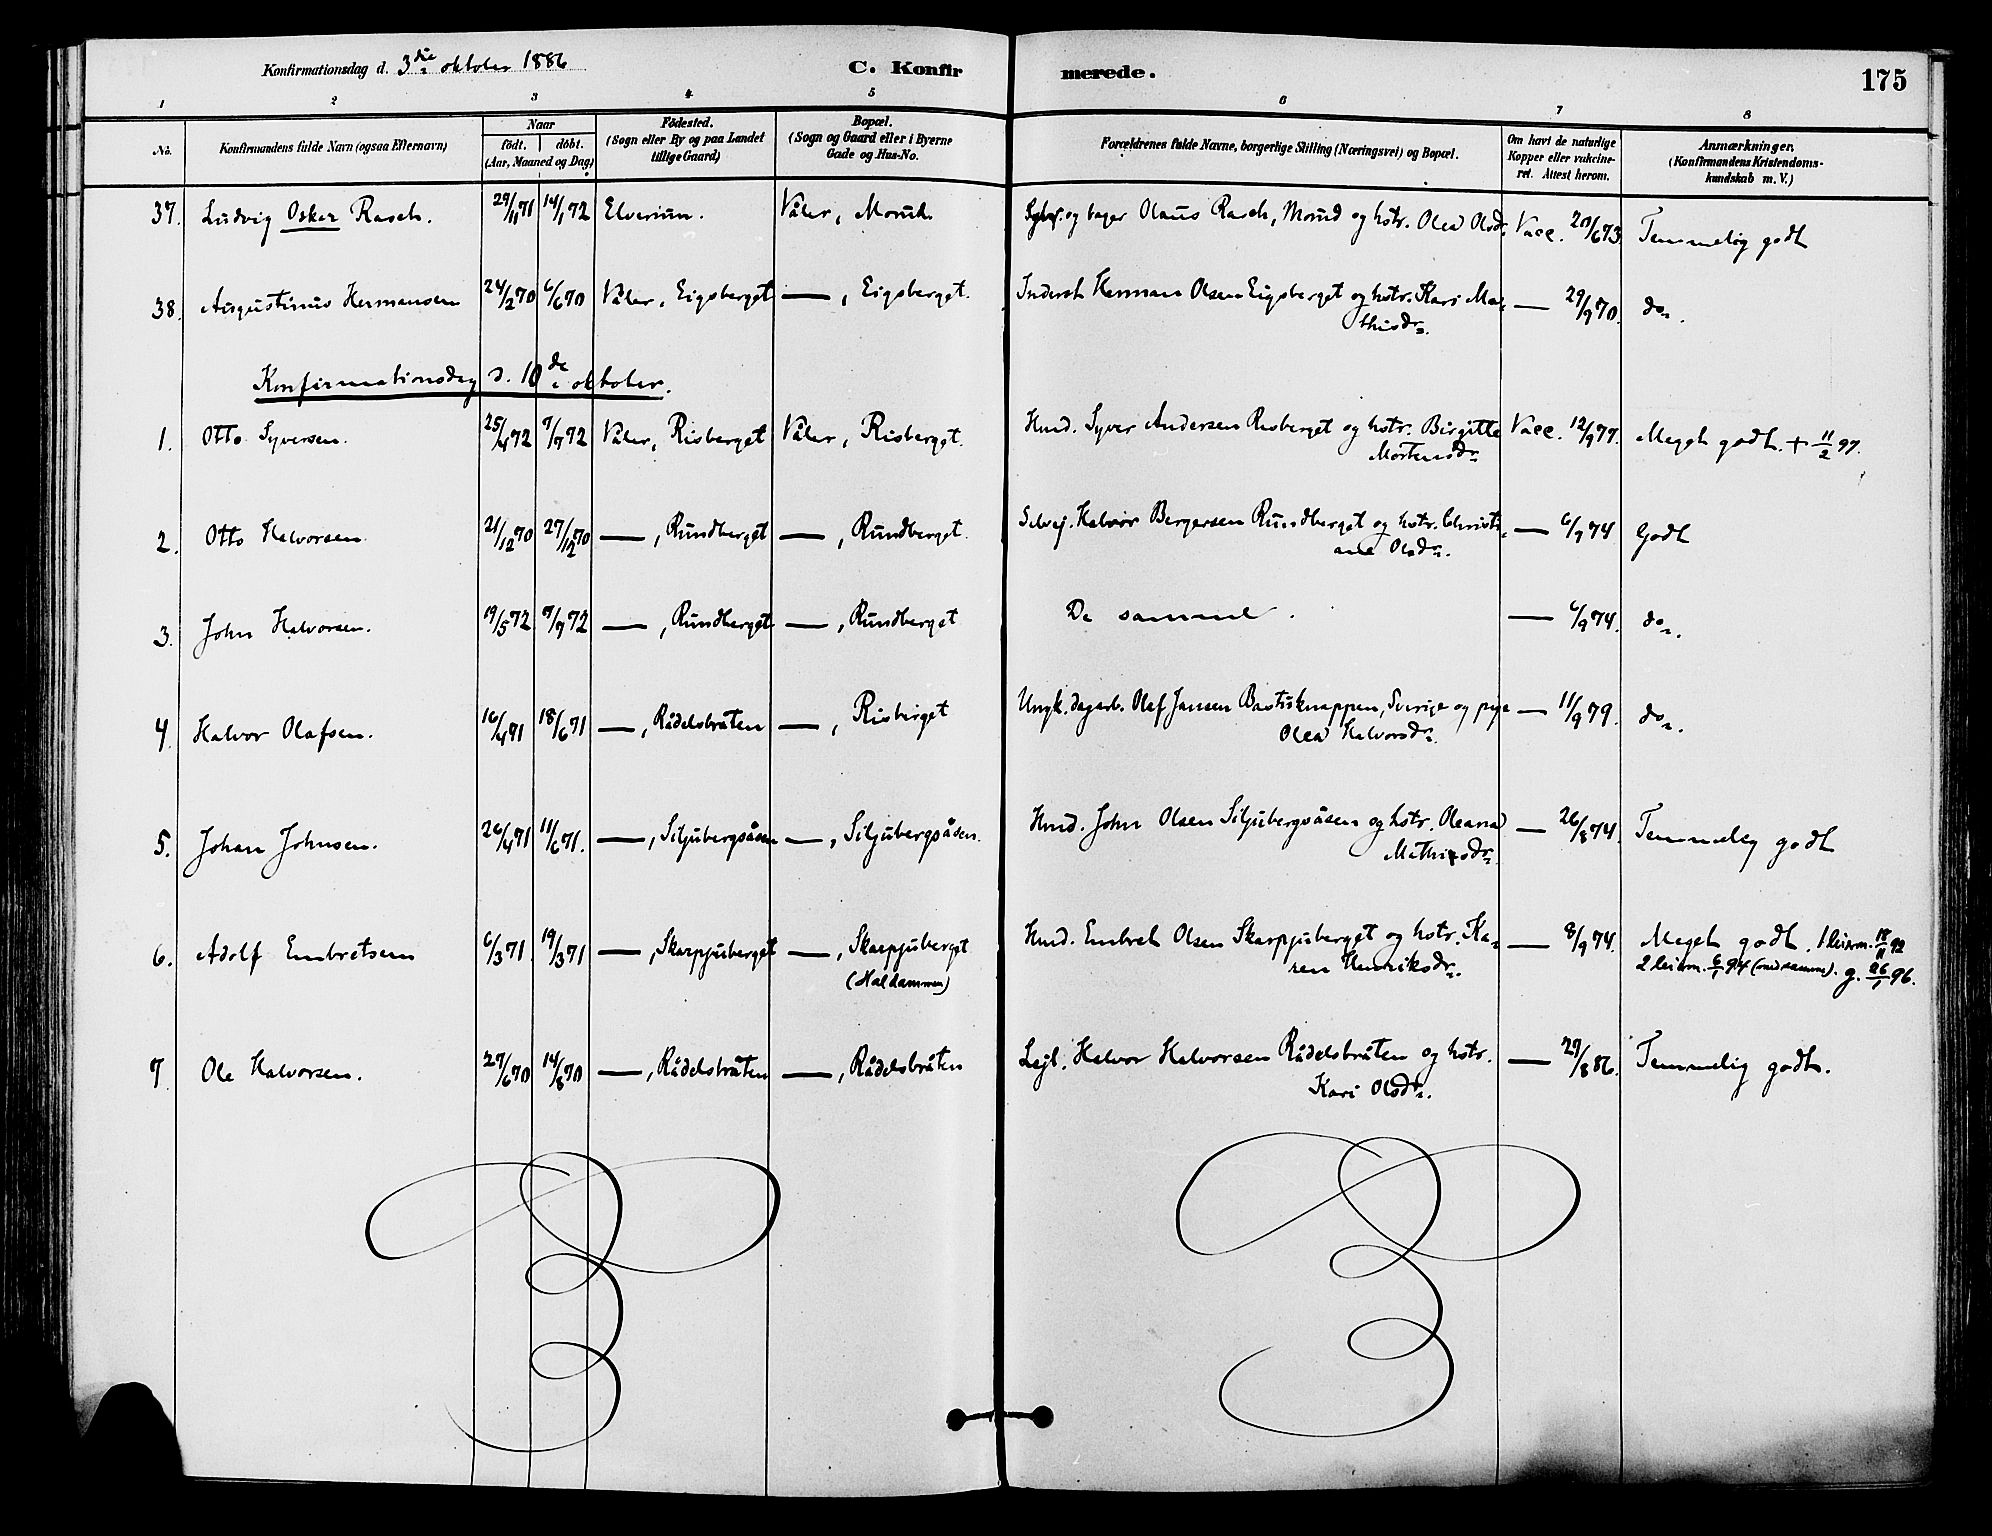 Konfirmationsdag d. 3die oktober 1886 C. Konfirmerede. 175
1 2 3 4 5 6 7 8
No. Konfirmandens fulde Navn (ogsaa Efternavn) Naar født. døbt. (Aar, Maaned og Dag) Fødested. (Sogn eller By og paa Landet tillige Gaard) Bopæl. (Sogn og Gaard eller i Byerne Gade og Hus-No. Forældrenes fulde Navne, borgerlige Stilling (Næringsvei) og Bopæl. Om havt de naturlige Kopper eller vakcineret. Attest herom. Anmærkninger. (Konfirmandens Kristendomskundskab m. V.)
37. Ludvig Oskar Rasch. 29/11 71 14/1 72 Elverum. Våler, Morud. og bager Olaus Rasch, Morud og hstr. Olea Olsdr. Vacc. 20/6 73. Temmelig godt
38. Augustinus Hermansen 24/2 70 6/6 70 Våler, Eigsberget —, Eigsberget. Inderst Herman Olsen Eigsberget og hstr. Kari Ma-
thisdr. — 29/9 70. do.
Konfirmationsdag d. 10de oktober.
1. Otto Syversen. 25/4 72 7/7 72 Våler, Risberget Våler, Risberget. Husmd. Syver Andersen Risberget og hstr. Birgitte
Mortensdr. Vacc. 12/9 77. Meget godt. + 11/2 97.
2. Otto Halvorsen 21/12 70 27/12 70 —, Rundberget —, Rundberget. Selvej. Halvor Bergersen Rundberget og hstr. Christi-
ane Olsdr. — 6/9 74 Godt
3. John Halvorsen. 19/5 72 7/7 72 —, Rundberget —, Rundberget De samme. — 6/9 74. do.
4. Halvor Olafsen. 16/4 71 18/6 71 —, Rådelsbråten —, Risberget Ungk. dagarb. Olaf Jansen Bastuknappen, Sverige og pige
Olea Halvorsdr. — 11/9 79. do.
5. Johan Johnsen. 26/4 71 11/6 71. —, Siljubergsåsen —, Siljubergsåsen. Husmd. John Olsen Siljubergsåsen og hstr. Oleana
Mathisdr. — 26/8 74. Temmelig godt
6. Adolf Embretsen 6/3 71 19/3 71 —, Skarpjuberget —, Skarpjuberget
(Haldammen) Husmd. Embret Olsen Skarpjuberget og hstr. Ka-
ren Henriksdr. — 8/9 74. Meget godt. 1 leierm. 18/11 92
2 leierm. 6/1 94 (med samme). g. 26/1 96.
7. Ole Halvorsen. 27/6 70 14/8 70 —, Rådelsbråten —, Rådelsbråten Lejl. Halvor Halvorsen Rådelsbråten og hstr.
Kari Olsdr. — 29/8 86. Temmelig godt.